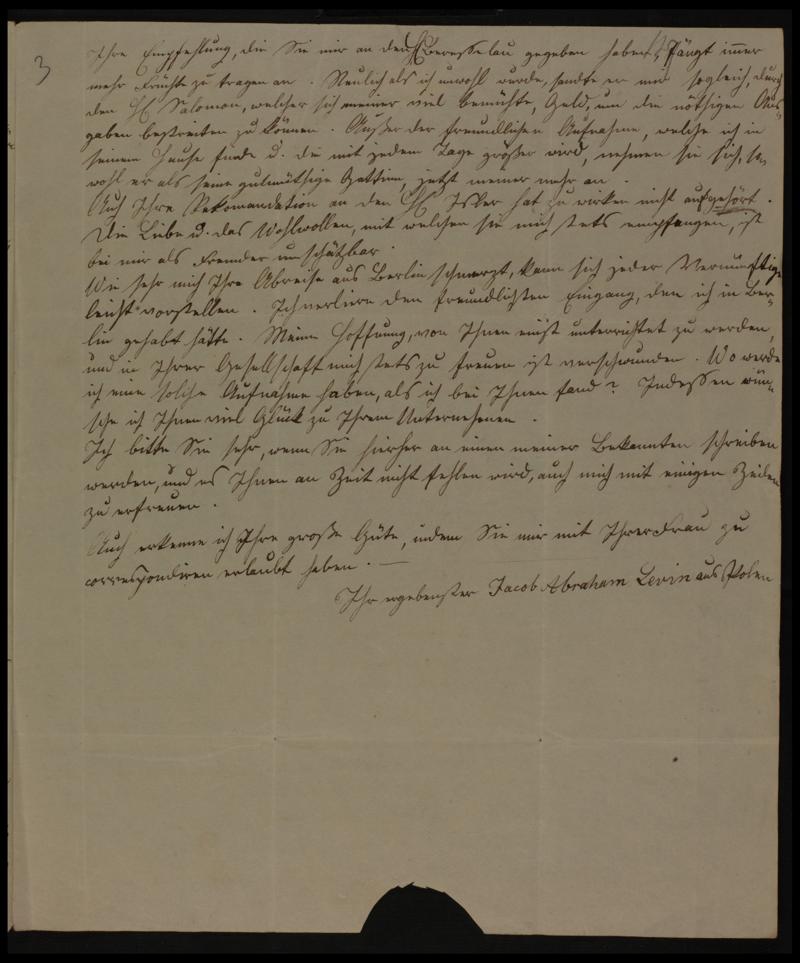 3
Ihre Empfehlung, die Sie mir an den H Beresselau gegeben haben, fängt immer
mehr Früchte zu tragen an. Neulich als ich unwohl wurde, sandte er mir sogleich, durch
den H Salomon, welcher sich meiner viel bemühte, Geld, um die nöthigen Aus=
gaben bestreiten zu können. Außer der freundlichen Aufnahme, welche ich in
seinem Hause finde u. die mit jedem Tage größer wird, nehmen sie sich, so
wohl er als seine gutmüthige Gattinn, jetzt meiner mehr an.
Auch Ihre Rekomandation an den H Isler hat zu wirken nicht aufgehört.
Die Liebe u. das Wohlwollen, mit welchen sie mich stets empfangen, ist
bei mir als Fremder unschätzbar.
Wie sehr mich Ihre Abreise aus Berlin schmerzt, kann sich jeder Vernünftige
leicht vorstellen. Ich verliere den freundlichsten Eingang, den ich in Ber=
lin gehabt hätte. Meine Hoffnung, von Ihnen einst unterrichtet zu werden,
und in Ihrer Gesellschaft mich stets zu freuen ist verschwunden. Wo werde
ich eine solche Aufnahme haben, als ich bei Ihnen fand? Indessen wün=
sche ich Ihnen viel Glück zu Ihrem Unternehmen.
Ich bitte Sie sehr, wenn Sie hierher an einen meiner Bekannten schreiben
werden, und es Ihnen an Zeit nicht fehlen wird, auch mich mit einigen Zeilen
zu erfreuen.
Auch erkenne ich Ihre große Güte, indem Sie mir mit Ihrer Frau zu
correspondiren erlaubt haben. —
Ihr ergebenster Jacob Abraham Levin aus Polen